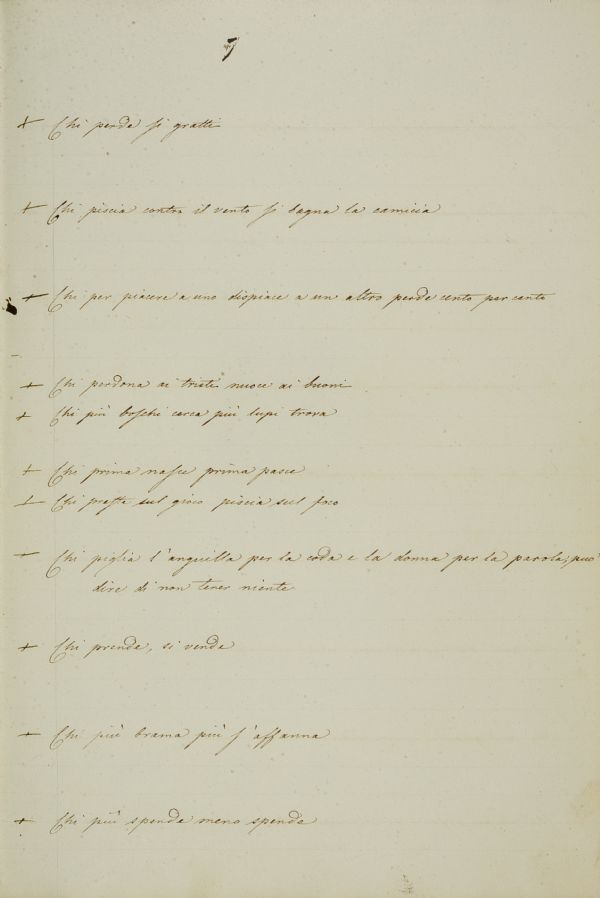 5
+ Chi perde si gratti
+ Chi piscia contra il vento si bagna la camicia
+ Chi per piacere a uno dispiace a un altro perde cento per cento
+ Chi perdona ai tristi nuoce ai buoni
+ Chi più boschi cerca più lupi trova
+ Chi prima nasce prima pasce
+ Chi presta sul gioco piscia sul foco
+ Chi piglia l'anguilla per la coda e la donna per la parola, può
dire di non tener niente
+ Chi prende, si vende
+ Chi più brama più s'affanna
+ Chi più spende meno spende